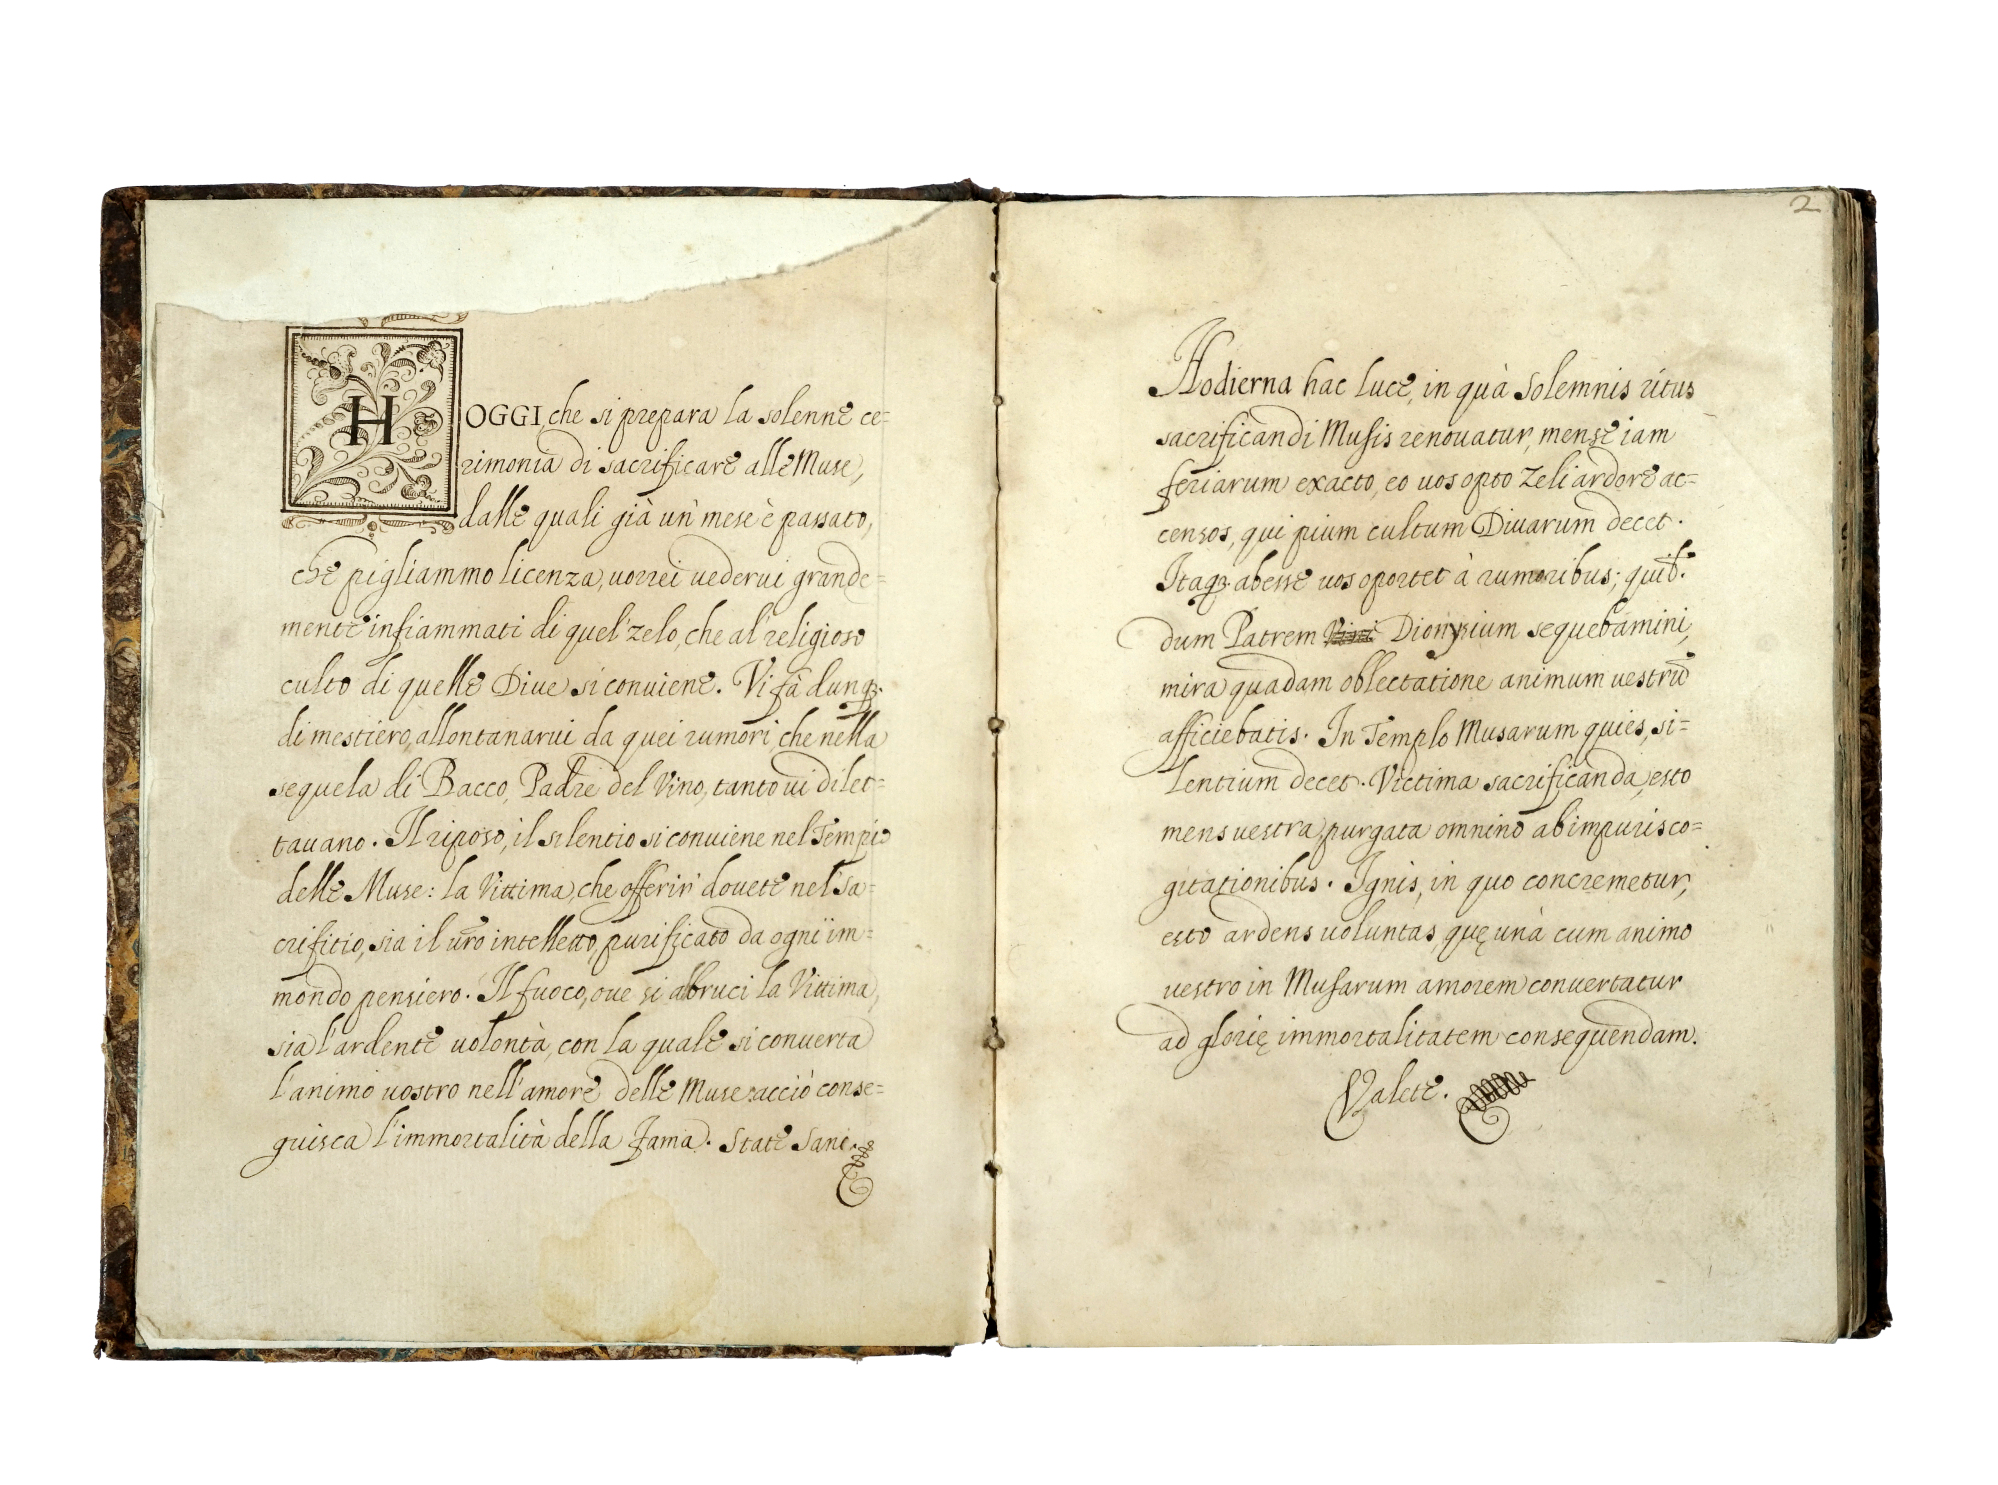 HOGGI, che si prepara la solenne ce=
rimonia di sacrificare alle Muse,
dalle quali già un' mese è passato,
che pigliammo licenza, uorrei uederui grande=
mente infiammati di quel' zelo, che al' religioso
culto di quelle Diue si conuiene. Vi fà dunq.
di mestiero, allontanarui da quei rumori, che nella
sequela di Bacco, Padre del Vino, tanto ui dilet=
tauano. Il riposo, il silentio si conuiene nel Tempio
delle Muse: la Vittima, che offerir' douete nel' sa=
crifitio, sia il uro intelletto, purificato da ogni im=
mondo pensiero. Il fuoco, oue si abbruci la Vittima,
sia l'ardente uolontà, con la quale si conuerta
l'animo uostro nell'amore delle Muse: acciò conse=
guisca l'immortalità della Fama. State sani.
2
Hodierna hac luce, in quà solemnis ritus
sacrificandi Musis renouatur, mense iam
feriarum exacto, eo uos opto zeli ardore ac=
censos, qui pium cultum Diuarum decet.
Itaq. abesse uos oportet à rumoribus; quib.
dum Patrem Dionysium sequebamini,
mira quadam oblectatione animum uestrū
afficiebatis. In Templo Musarum quies, si=
lentium decet. Victima sacrificanda, esto
mens uestra, purgata omnino ab impuris co=
gitationibus. Ignis, in quo concremetur,
esto ardens uoluntas, quę unà cum animo
uestro in Musarum amorem conuertatur
ad glorię immortalitatem consequendam.
Valete.